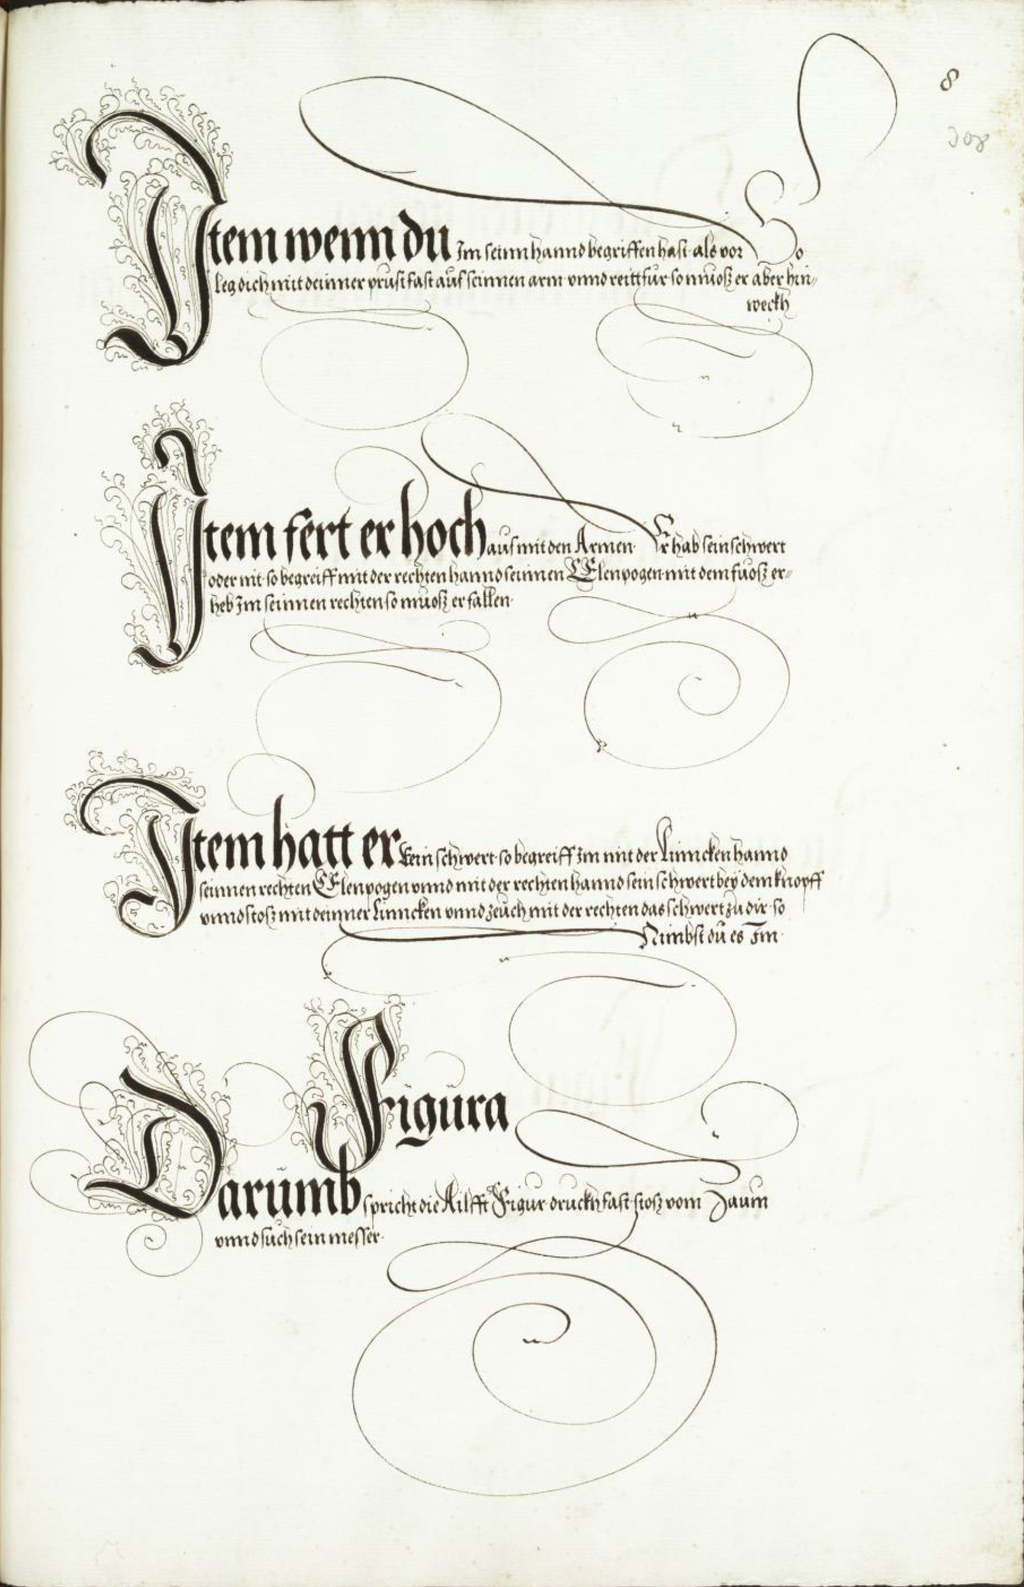 8
308
Item wenn du Im seinn hannd begriffen hast als vor So
leg dich mit deinner prust fast auf seinnen arm vnnd reitt für so muosz er aber hin=
weckh
Item fert er hoch aus mit den Armen Er hab sein schwert
oder nit so begreiff mit der rechten hannd seinnen Elenpogen mit dem fuosz er=
heb Im seinnen rechten so muosz er fallen
Item hatt er kein schwert so begreiff Im mit der linncken hannd
seinnen rechten Elenpogen vnnd mit der rechten hannd sein schwert bey dem knopff
vnnd stosz mit deinner linncken vnnd zeuch mit der rechten das schwert zu dir so
Nimbst dü es Im
Figüra
Darümb spricht die Ailfft Figur druckh fast stosz vom Zaum
vnnd süch sein messer